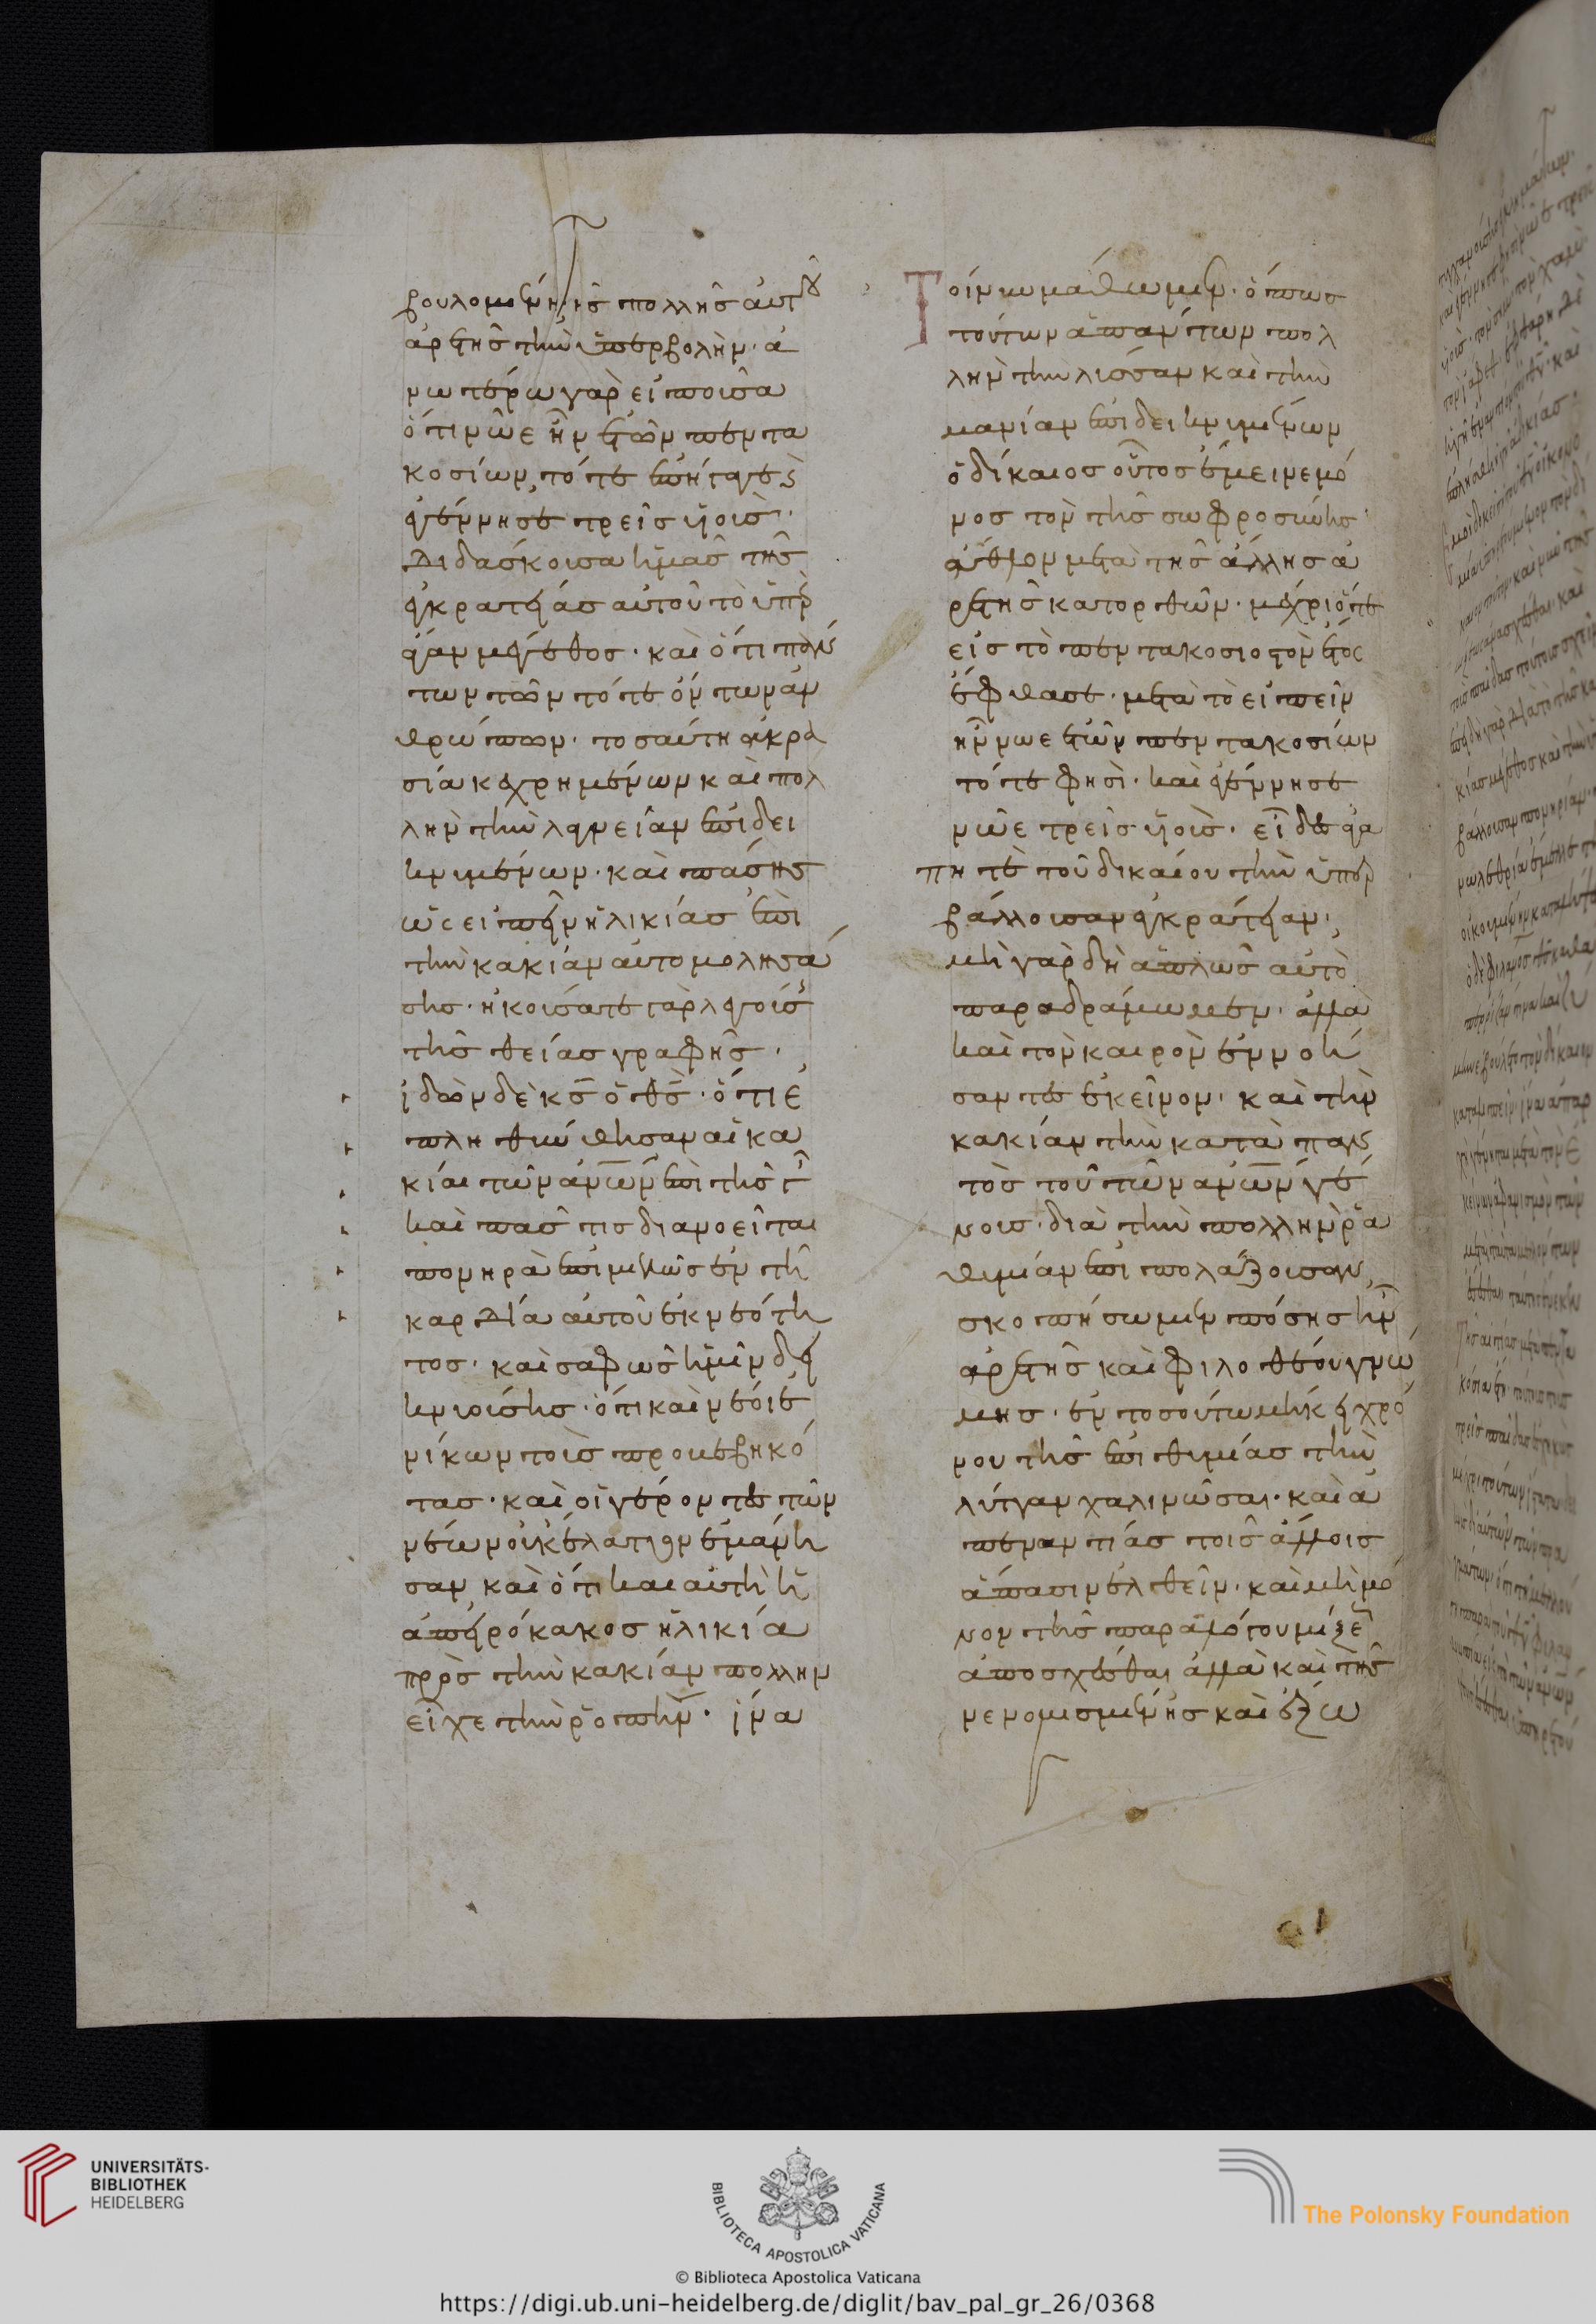 βουλομένη τῆς πολλῆς αὐτοῦ
ἀρετῆς τὴν ὑπερβολήν· ἀ
νωτέρω γὰρ εἰποῦσα
ὅτι νῶε ἦν ἐτῶν πεντα
κοσίων, τότε ἐπήγαγε·
ἐγέννησε τρεῖς υἱούς·
διδάσκουσα ἡμᾶς τῆς
ἐγκρατείας αὐτοῦ τὸ ὑπερ
άγαν μέγεθος· καὶ ὅτι πάν
των τῶν τότε ὄντων ἀν
θρώπων· τοσαύτη ἀκρα
σία κεχρημένων καὶ πολ
λὴν τὴν λαγνείαν ἐπιδει
κνυμένων· καὶ πάσης
ὡς εἰπεῖν ἡλικίας ἐπὶ
τὴν κακίαν αὐτομολησά
σης· ἠκούσατε γὰρ λεγούσης
τῆς θείας γραφῆς·
ἰδὼν δὲ κς ὁ θς· ὅτι ἐ
πληθύνθησαν αἱ κα
κίαι τῶν ἀνων ἐπὶ τῆς γῆς
καὶ πᾶς τις διανοεῖται
πονηρὰ ἐπιμελῶς ἐν τῇ
καρδία αὐτοῦ ἐκ νεότη
τος· καὶ σαφῶς ἡμῖν δει
κνυούσης· ὅτι καὶ νέοι ἐ
νίκων τοὺς προβεβηκό
τας· καὶ οἱ γέροντες τῶν
νέων οὐκ ἔλαττον ἐμάνη
σαν καὶ ὅτι καὶ αὐτὴ ἡ
ἀπειρόκακος ἡλικία
πρὸς τὴν κακίαν πολλὴν
εἶχε τὴν ῥοπήν· ἵνα
τοίνυν μάθωμεν· ὅπως
τούτων ἁπάντων πολ
λὴν τὴν λύσσαν καὶ τὴν
μανίαν ἐπιδεικνυμένων
ὁ δίκαιος οὗτος ἔμεινε μό
νος τὸν τῆς σωφροσύνης
ἆθλον μετὰ τῆς ἄλλης ἀ
ρετῆς κατορθῶν· μέχρι ὅτε
εἰς τὸ πεντακοσιοστὸν ἔτος
ἔφθασε· μετὰ τὸ εἰπεῖν
ἦν νῶε ἐτῶν πεντακοσίων
τότε φησὶ· καὶ ἐγέννησε
νῶε τρεῖς υἱούς· εἶδες ἀγα
πητὲ τοῦ δικαίου τὴν ὑπερ
βάλλουσαν ἐγκράτειαν·
μὴ γὰρ δὴ ἁπλῶς αὐτὸ
παραδράμωμεν· ἀλλὰ
καὶ τὸν καιρὸν ἐννοή
σαντες ἐκεῖνον· καὶ τὴν
κακίαν τὴν κατὰ παν
τὸς τοῦ τῶν ἀνων γέ
νους· διὰ τὴν πολλὴν ῥα
θυμίαν ἐπιπολάζουσαν,
σκοπήσωμεν πόσης ἦν
ἀρετῆς καὶ φιλοθέου γνώ
μης· ἐν τοσούτω μήκει χρό
νου τῆς ἐπιθυμίας τὴν
λύτταν χαλινῶσαι· καὶ ἀ
πεναντίας τοῖς ἄλλοις
ἅπασιν ἐλθεῖν· καὶ μὴ μό
νον τῆς παρανόμου μίξεως
ἀποσχέσθαι ἀλλὰ καὶ τῆς
νενομισμένης καὶ ἔξω
UNIVERSITÄTS-
BIBLIOTHEK
HEIDELBERG
BIBLIOTECA APOSTOLICA VATICANA
The Polonsky Foundation
© Biblioteca Apostolica Vaticana
https://digi.ub.uni-heidelberg.de/diglit/bav_pal_gr_26/0368